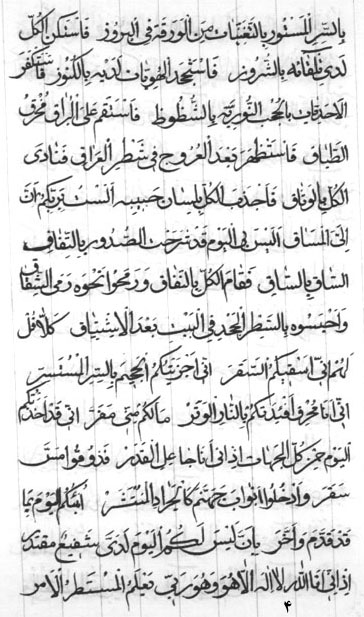 بالسر المستور بالتغنيات من الورقة في البروز فاستكن الكل
لدى تلقائه بالشروز فاستجد الهويات لديه بالكنوز فاستكفر
الاحديات بالحجب النورية بالشظوظ فاستقم على البراق مخرق
الطباق فاستظهر بعد العروج في شطر العراق فنادى
الكل بالوثاق فاخذ الكل بلسان حبيبه الست بربكم ان
الى المساق اليس لي اليوم قد شرحت الصدور بالتفاف
الساق بالساق فقام الكل بالنفاق ورمحوا نحوه رمى الشقاق
واحبسوه بالشطر البعد في البيت بعد الاشتياق كلا قل
لهم اني اسقيكم السقر اني اجزيتكم الجحيم بالسر المستسر
اني انا مخرق افئدتكم بالنار الوتر مالكم مني مفر اني قد اخذتكم
اليوم من كل الجهات اذ اني انا جاعل القدر فذوقوا مس
سقر وادخلوا ابواب جهنم كالجراد المنتشر اليوم بما
قد قدم واخر بان ليس لكم اليوم لدى شفيع مقتدر
اذ اني انا الله لا اله الا هو وهو ربي فيعلم المستطر الامر
۴